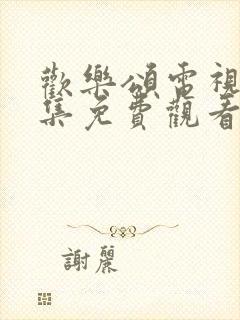 歡樂頌電視
集免費觀看
謝麗